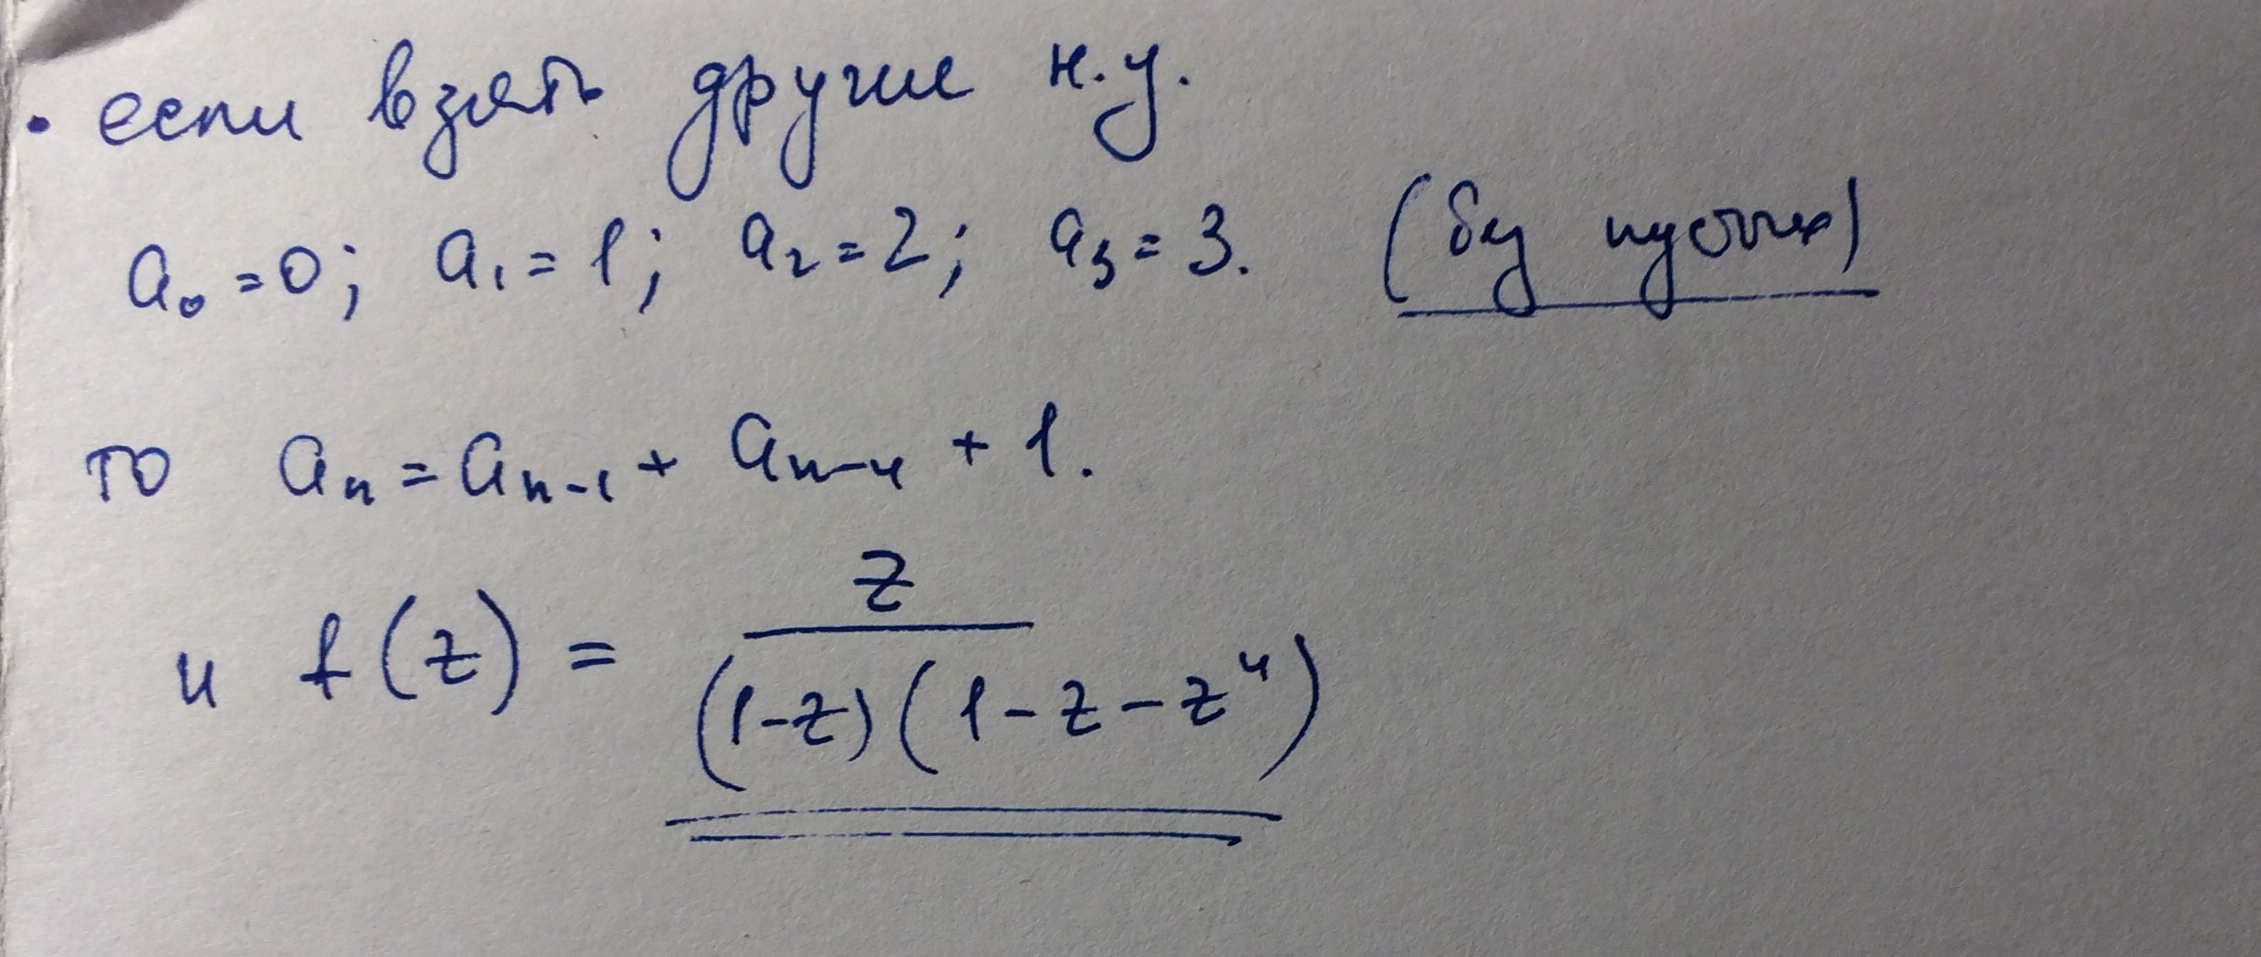 • если взять другие н.у.
a₀ = 0; a₁ = 1; a₂ = 2; a₃ = 3. (без пустых)
то aₙ = aₙ₋₁ + aₙ₋₄ + 1.
и f(z) = z / ((1-z)(1-z-z⁴))